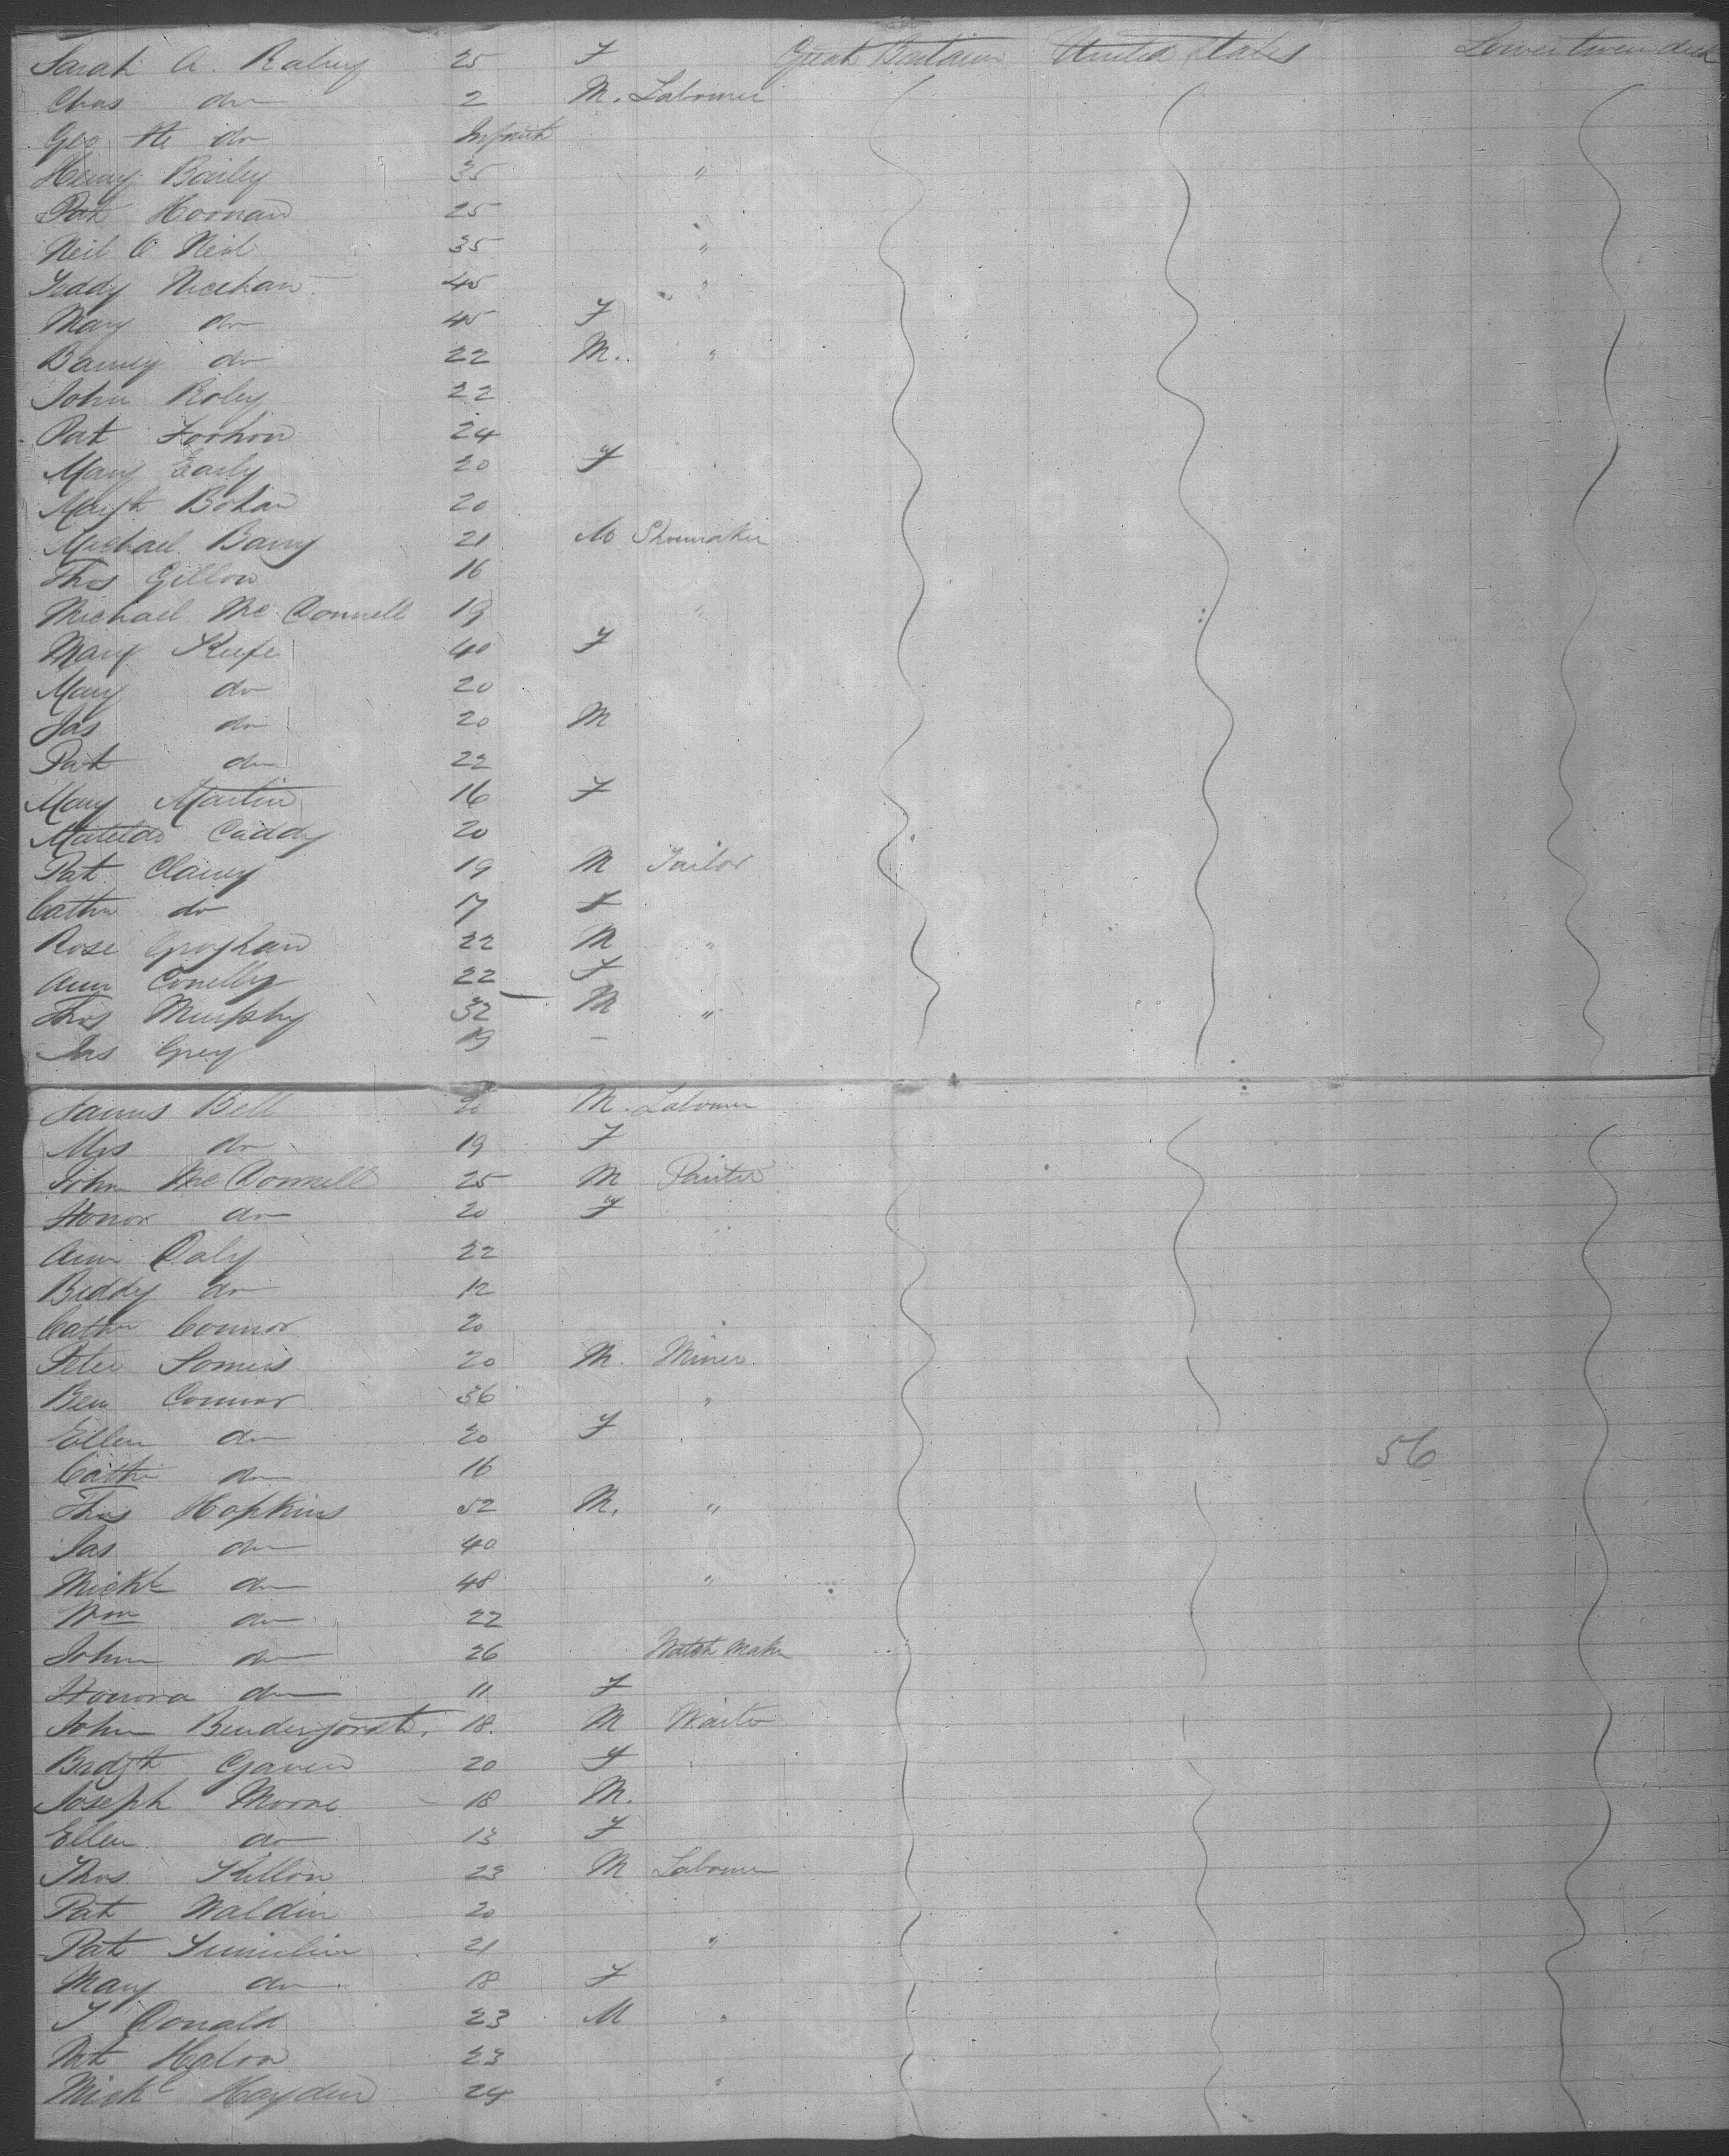 Sarah A. 25 F Great Britain United States Lower tween deck
Chas do 2 M. Labourer
Geo do Infant
Henry Bailey 35 "
Pat Hoonan 25
Neil O Neil 35 "
Teddy Meehan 45 "
Mary do 45 F
Barney do 22 M. "
John Roley 22
Pat 24
Mary Early 20 F
Margt Bohan 20
Michael Barry 21 M Shoemaker
Thos Gillon 16
Michael Mc Donnell 19 "
Mary Keefe 40 F
Mary do 20
Jas do 20 M
Pat do 22
Mary Martin 16 F
Matilda Caddy 20
Pat Clancy 19 M Tailor
Cathe do 17 F
Rose Groghan 22 M "
Ann Conelly 22 F
Thos Murphy 32 M "
Jas Grey 19 -
James Bell 20 M. Labourer
Mrs do 19 F
John Mc Donnell 25 M Painter
Honor do 20 F
Ann Daly 22
Biddy do 12
Cathe Connor 20
Peter Somers 20 M. Miner
Ben Connor 36 "
Ellen do 20 F
56
Cathe do 16
Thos Hopkins 52 M. "
Jas do 40
Michl do 48 "
Wm do 22
John do 26 Watch Maker
Honora do 11 F
John 18. M Waiter
Bridgt Gaven 20 F
Joseph Moore 18 M.
Ellen do 13 F
Thos Killon 23 M Labourer
Pat Waldin 20
Pat 21 "
Mary do 18 F
T Donald 23 M "
Pat 23
Mick Hayden 24 "